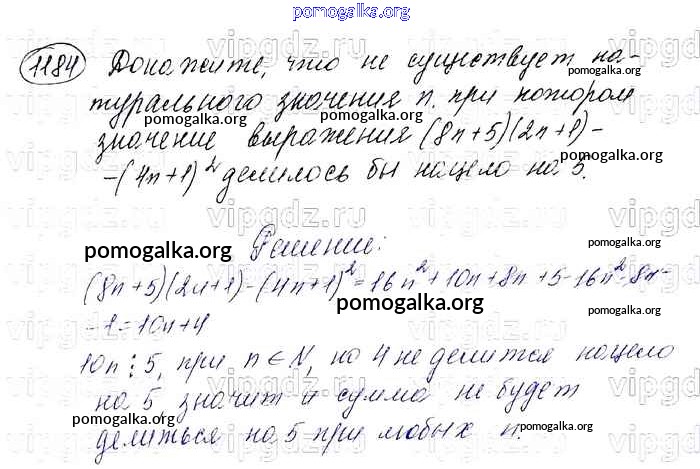 pomogalka.org
1184 Докажите, что не существует на-
pomogalka.org
турального значения n. при котором
pomogalka.org
значение выражения (8n+5)(2n+1)-
pomogalka.org
-(4n+1)² делилось бы нацело на 5.
vipgdz.ru
pomogalka.org Решение: pomogalka.org
(8n+5)(2n+1)-(4n+1)²=16n²+10n+8n+5-16n²-8n-
pomogalka.org
-1=10n+4
10n⋮5, при n∈N, но 4 не делится нацело
pomogalka.org pomogalka.org
на 5, значит и сумма не будет
pomogalka.org
делиться на 5 при любых n.